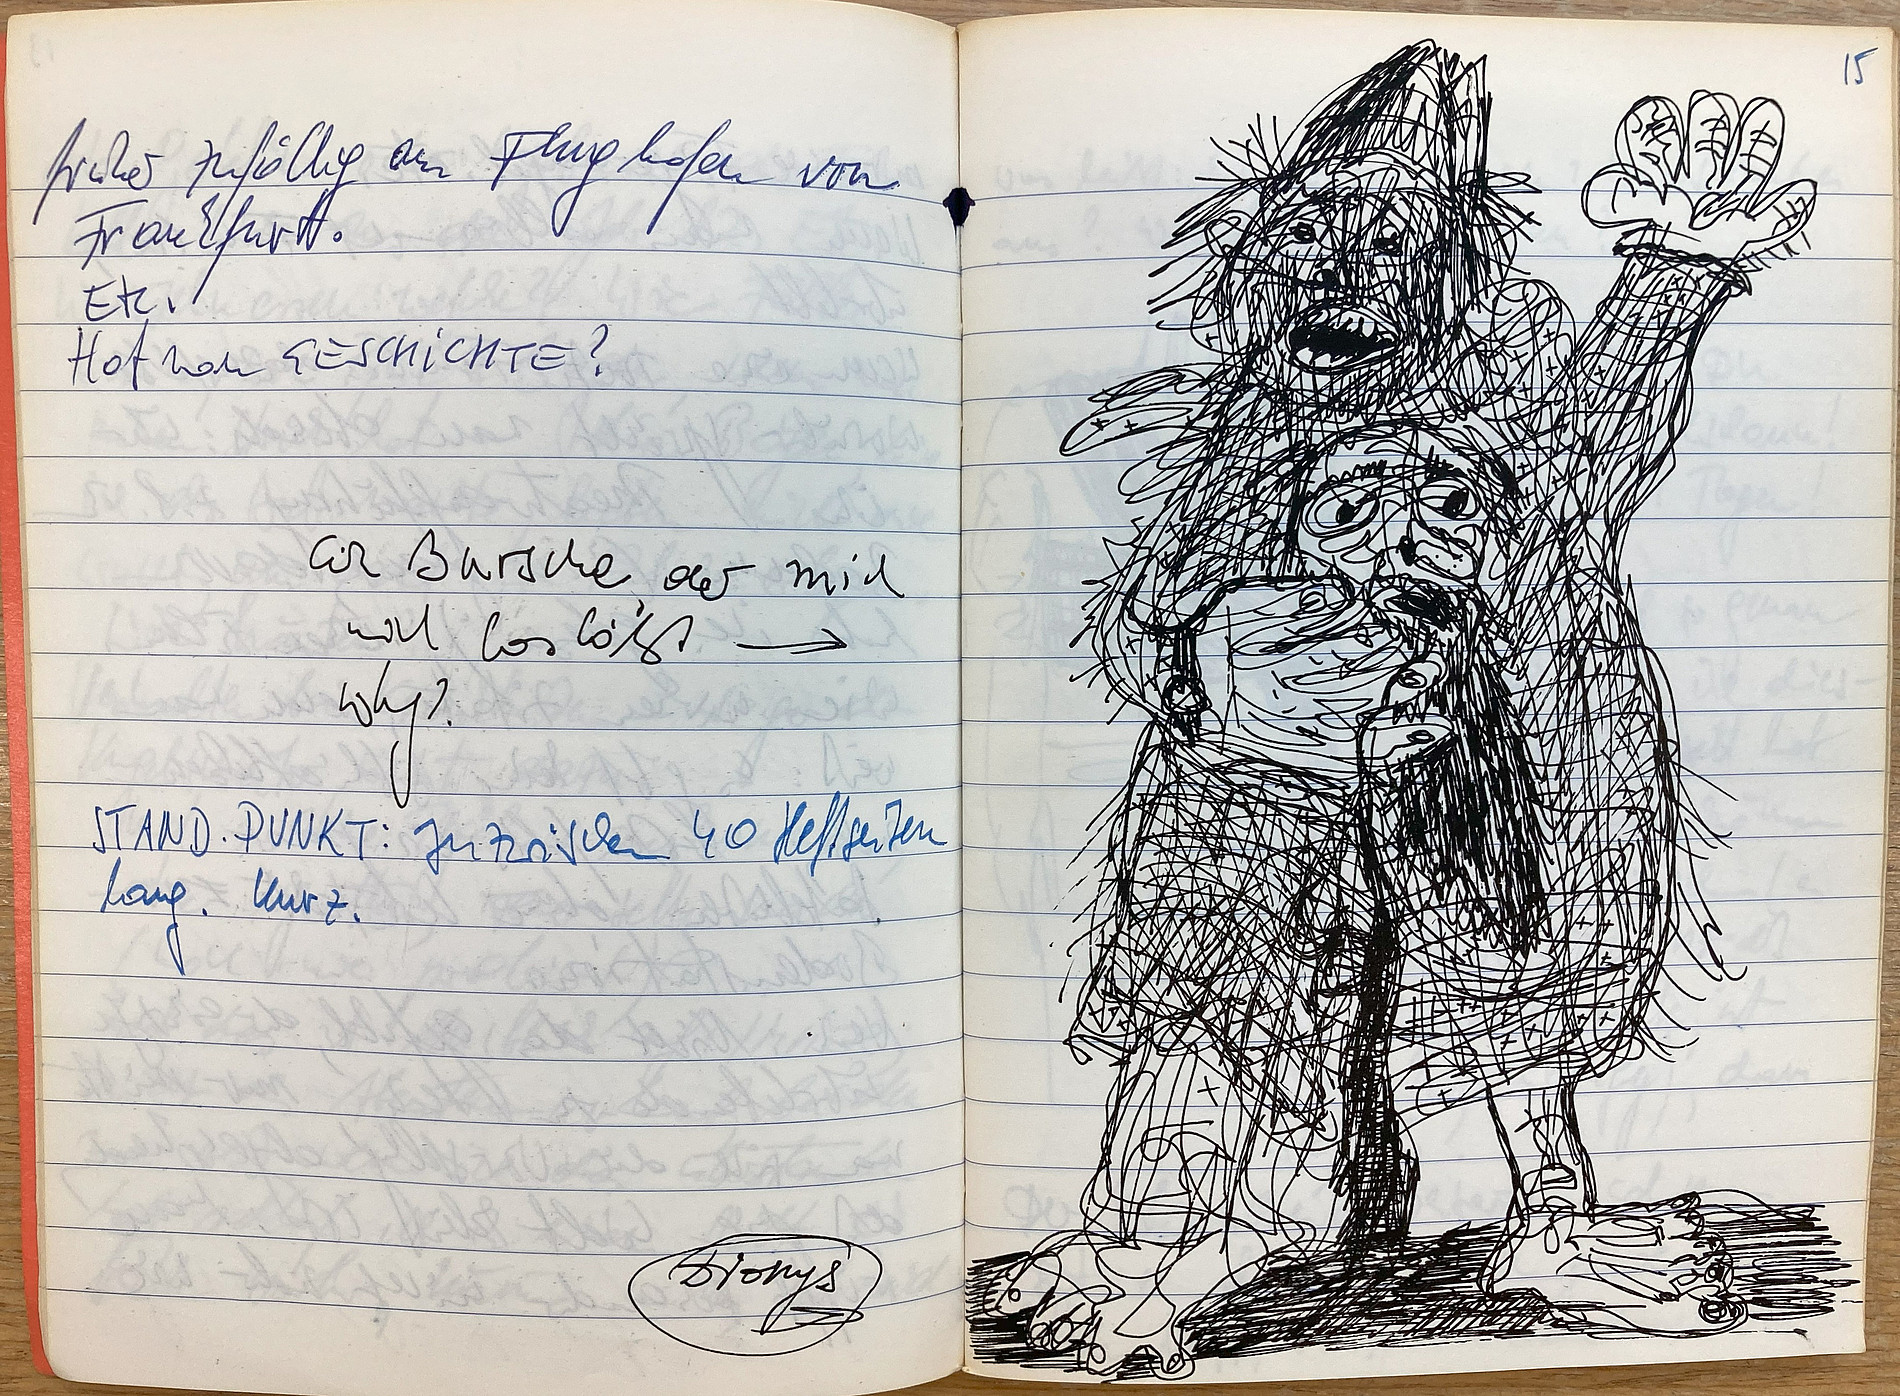 früher zufällig am Flughafen von
Frankfurt.
Etc.
Hat man GESCHICHTE?
Ein Bursche, der mich
nicht loslässt →
why?
STAND.PUNKT: Inzwischen 40 Heftseiten
lang. Kurz.
Dionys
15